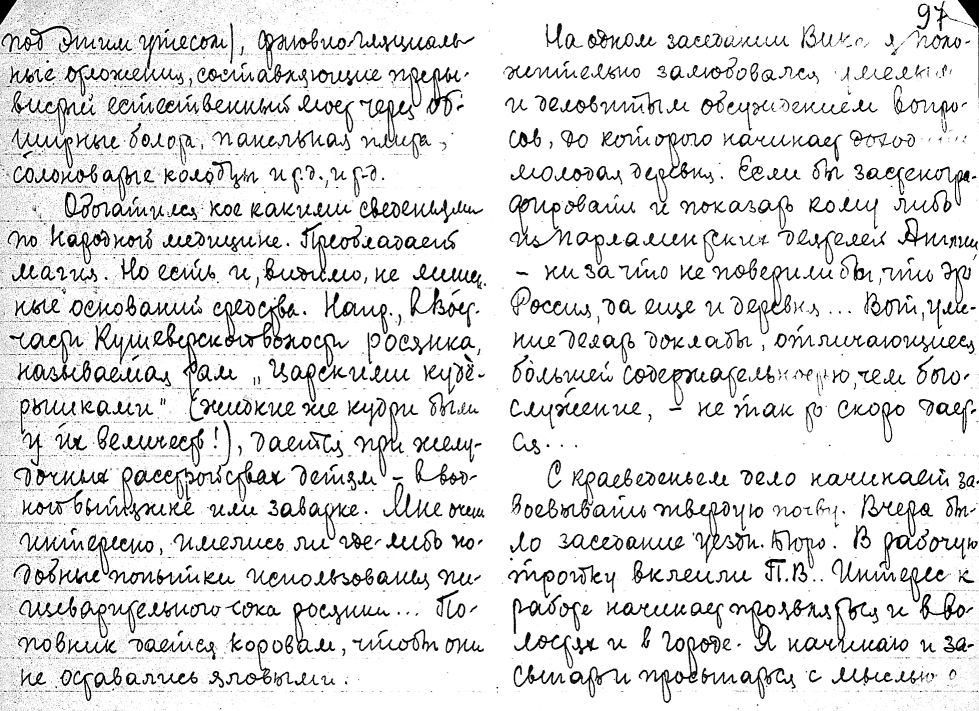 под этим утесом), флювио-гляциаль-
ные отложения, составляющие преры-
вистый естественный мост через об-
ширные болота, панельная плита,
солоноватые колодцы и т.д., и т.д.
Обогатился кое какими сведеньями
по народной медицине. Преобладает
магия. Но есть и, видимо, не лишен-
ные оснований средства. Напр., в Вост.
части Кушеверской волости росянка,
называемая там „царскими кудё-
рышками" (жидкие же кудри были
у их величеств!), дается при желу-
дочных расстройствах детям – в вод-
ной вытяжке или заварке. Мне очень
интересно, имелись ли где-либо по-
добные попытки использования пи-
щеварительного сока росянки... По-
повник дается коровам, чтобы они
не оставались яловыми.
97
На одном заседании Вика я поло-
жительно залюбовался умелым
и деловитым обсуждением вопро-
сов, до которого начинает доход
молодая деревня. Если бы застеногра-
фировать и показать кому либо
из парламентских деятелей Англии,
– ни за что не поверили бы, что это
Россия, да еще и деревня... Вот, уме-
ние делать доклады, отличающиеся
большей содержательностью, чем бого-
служение, – не так то скоро дает-
ся...
С краеведеньем дело начинает за-
воевывать твердую почву. Вчера бы-
ло заседание уездн. бюро. В рабочую
тройку вклеили П.В.. Интерес к
работе начинает проявляться и в во-
лостях и в городе. Я начинаю и за-
сыпать и просыпаться с мыслью о